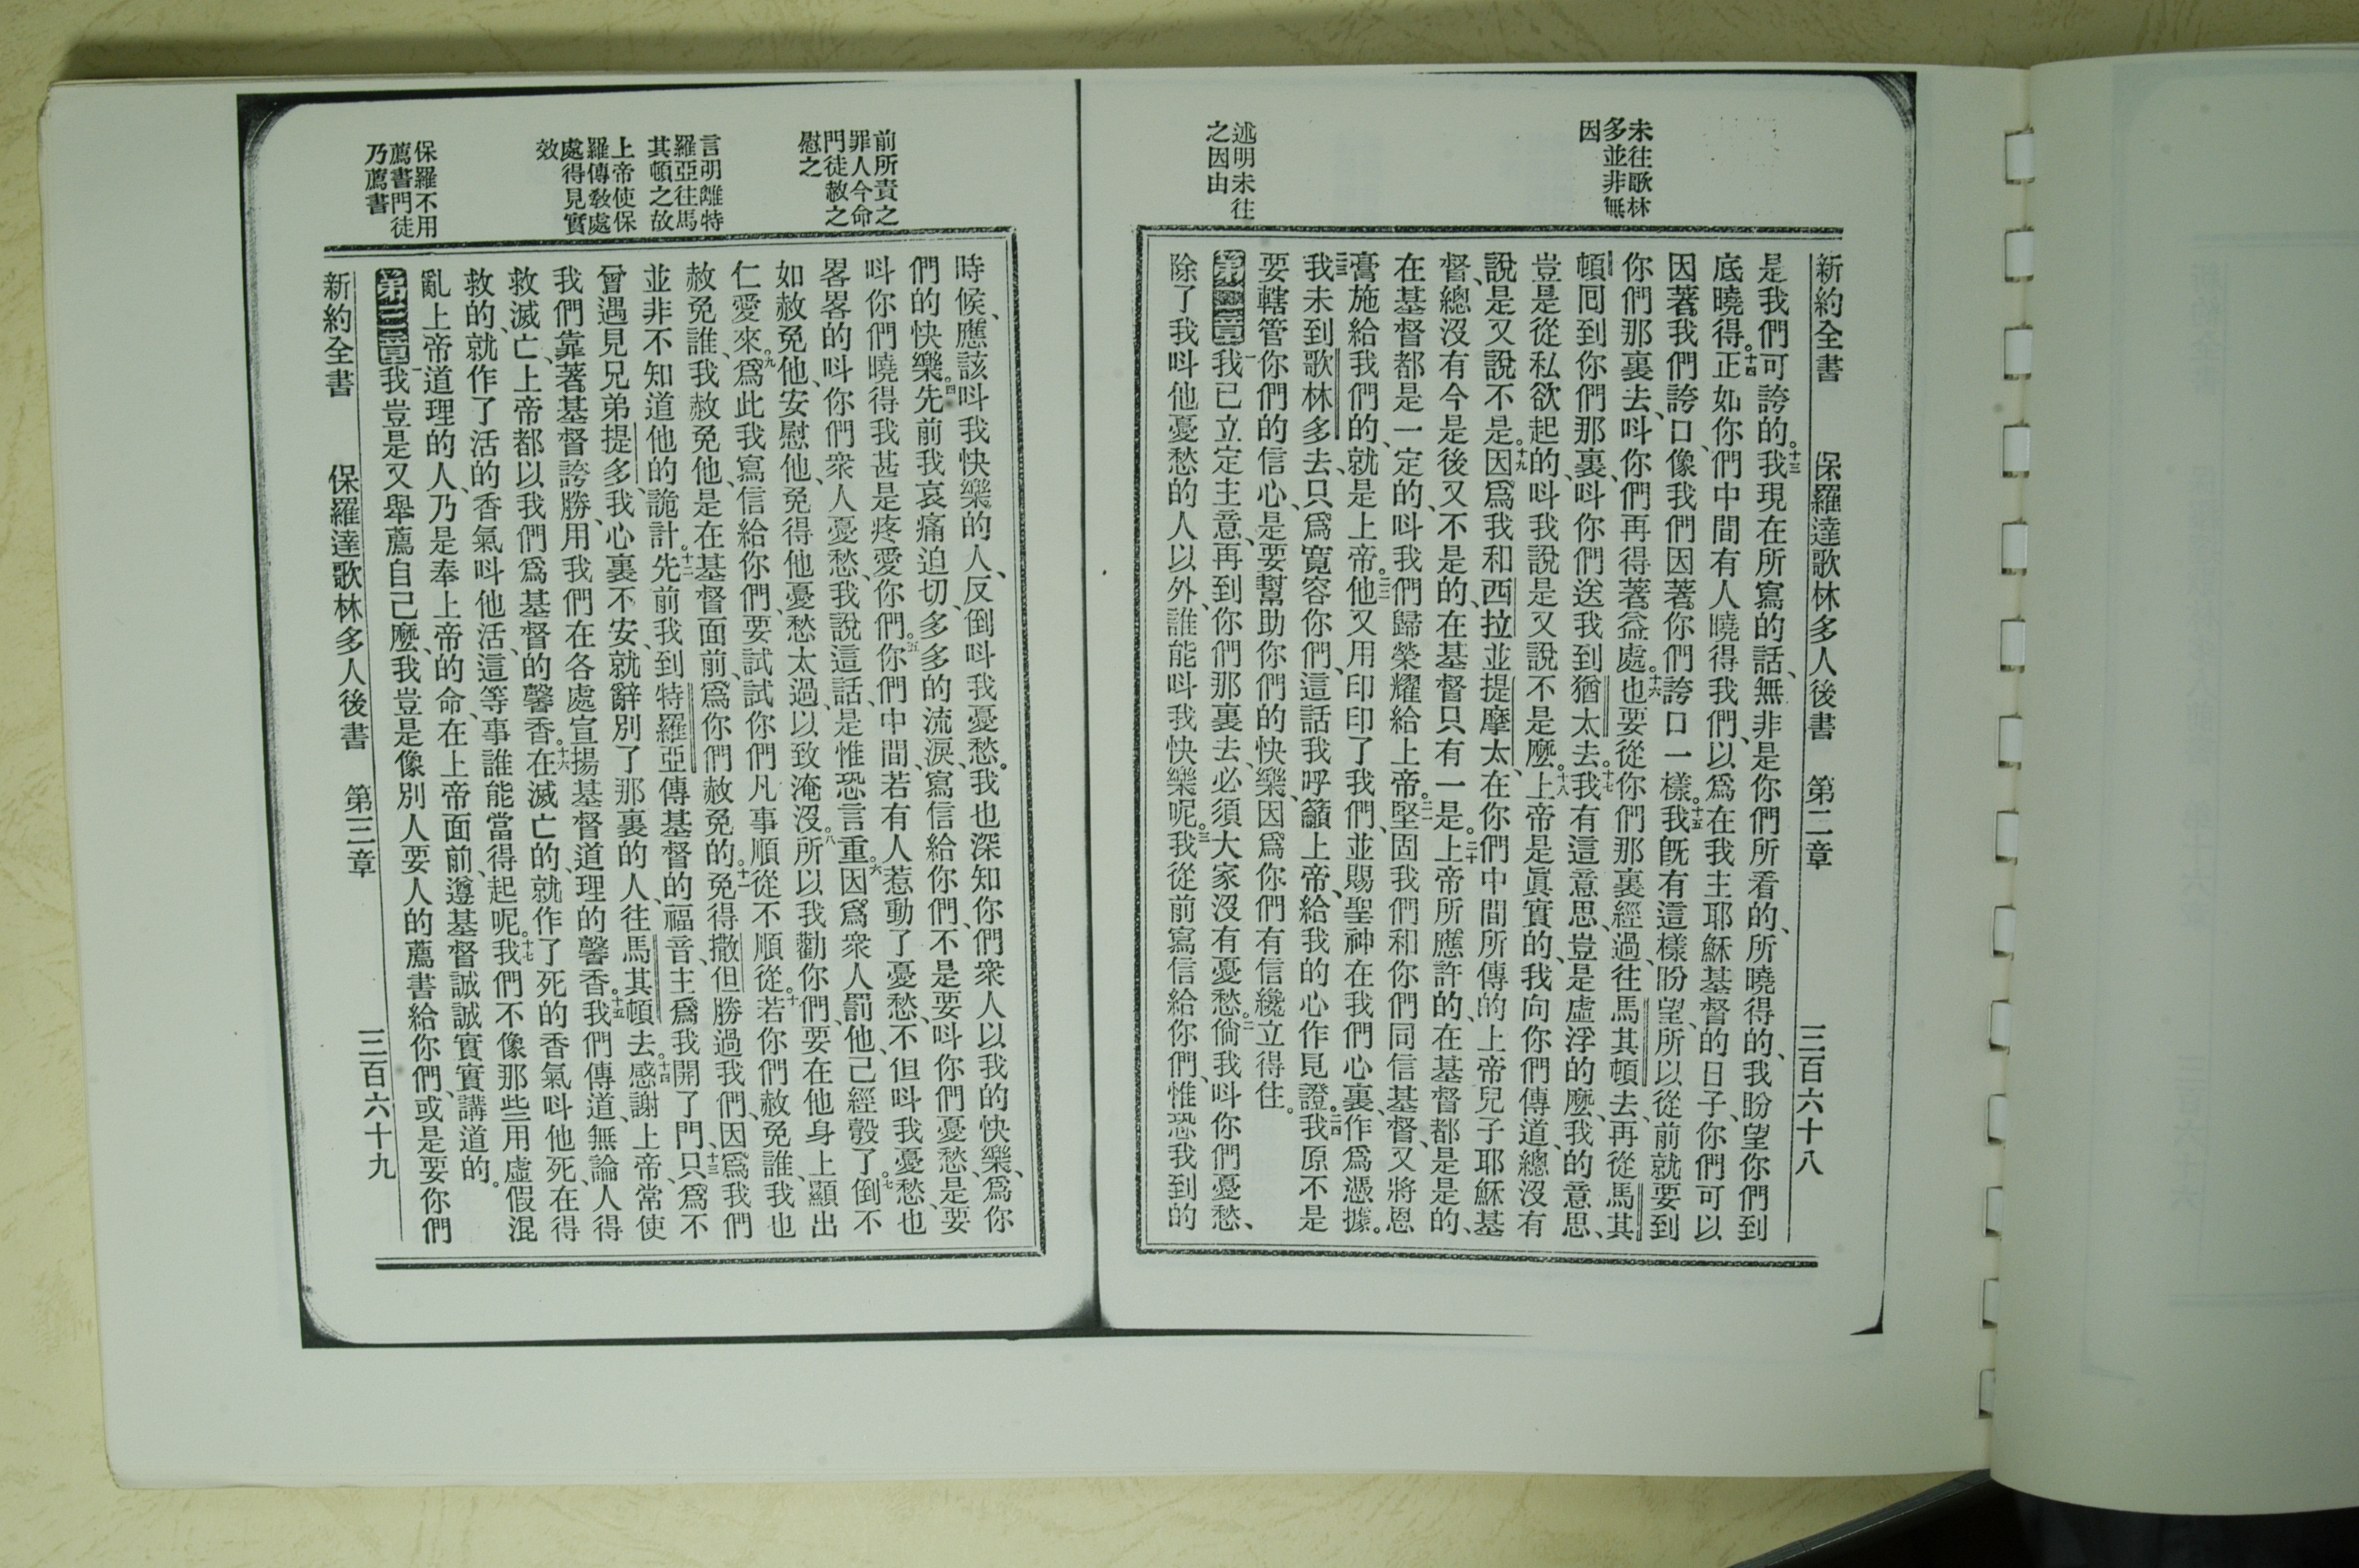 未往歌林
多並非無
因
述明未往
之因由
新約全書 保羅達歌林多人後書 第二章 三百六十八
是我們可誇的。十三我現在所寫的話、無非是你們所看的、所曉得的、我盼望你們到
底曉得。十四正如你們中間有人曉得我們、以爲在我主耶穌基督的日子、你們可以
因著我們誇口、像我們因著你們誇口一樣。十五我旣有這樣盼望、所以從前就要到
你們那裏去、呌你們再得著益處。十六也要從你們那裏經過、往馬其頓去、再從馬其
頓囘到你們那裏、呌你們送我到猶太去。十七我有這意思、豈是虛浮的麽、我的意思、
豈是從私欲起的、呌我說是又說不是麽。十八上帝是眞實的、我向你們傳道、總沒有
說是又說不是。十九因爲我和西拉並提摩太、在你們中間所傳的上帝兒子耶穌基
督、總沒有今是後又不是的、在基督只有一是。二十上帝所應許的、在基督都是是的、
在基督都是一定的、呌我們歸榮耀給上帝。二一堅固我們和你們同信基督、又將恩
膏施給我們的、就是上帝。二二他又用印印了我們、並賜聖神在我們心裏、作爲憑據。
二三我未到歌林多去、只爲寬容你們、這話我呼籲上帝、給我的心作見證。二四我原不是
要轄管你們的信心、是要幫助你們的快樂、因爲你們有信纔立得住。
第二章一我已立定主意、再到你們那裏去、必須大家沒有憂愁。二倘我呌你們憂愁、
除了我呌他憂愁的人以外、誰能呌我快樂呢。三我從前寫信給你們、惟恐我到的
前所責之
罪人今命
門徒赦之
慰之
言明離特
羅亞往馬
其頓之故
上帝使保
羅傳敎處
處得見實
效
保羅不用
薦書門徒
乃薦書
時候、應該呌我快樂的人、反倒呌我憂愁。我也深知你們衆人以我的快樂、爲你
們的快樂。四先前我哀痛迫切、多多的流淚、寫信給你們、不是要呌你們憂愁、是要
呌你們曉得我甚是疼愛你們。五你們中間、若有人惹動了憂愁、不但呌我憂愁、也
畧畧的呌你們衆人憂愁、我說這話、是惟恐言重。六因爲衆人罰他、已經彀了。七倒不
如赦免他、安慰他、免得他憂愁太過、以致淹沒。八所以我勸你們、要在他身上顯出
仁愛來。九爲此我寫信給你們、要試試你們凡事順從不順從。十若你們赦免誰、我也
赦免誰、我赦免他、是在基督面前、爲你們赦免的。十一免得撒但勝過我們、因爲我們
並非不知道他的詭計。十二先前我到特羅亞傳基督的福音、主爲我開了門、十三只爲不
曾遇見兄弟提多、我心裏不安、就辭別了那裏的人、往馬其頓去。十四感謝上帝、常使
我們靠著基督誇勝、用我們在各處宣揚基督道理的馨香。十五我們傳道、無論人得
救滅亡、上帝都以我們爲基督的馨香。十六在滅亡的、就作了死的香氣呌他死、在得
救的、就作了活的香氣呌他活、這等事誰能當得起呢。十七我們不像那些用虛假混
亂上帝道理的人、乃是奉上帝的命、在上帝面前、遵基督誠誠實實講道的。
第三章一我豈是又舉薦自己麽、我豈是像別人要人的薦書給你們、或是要你們
新約全書 保羅達歌林多人後書 第三章 三百六十九